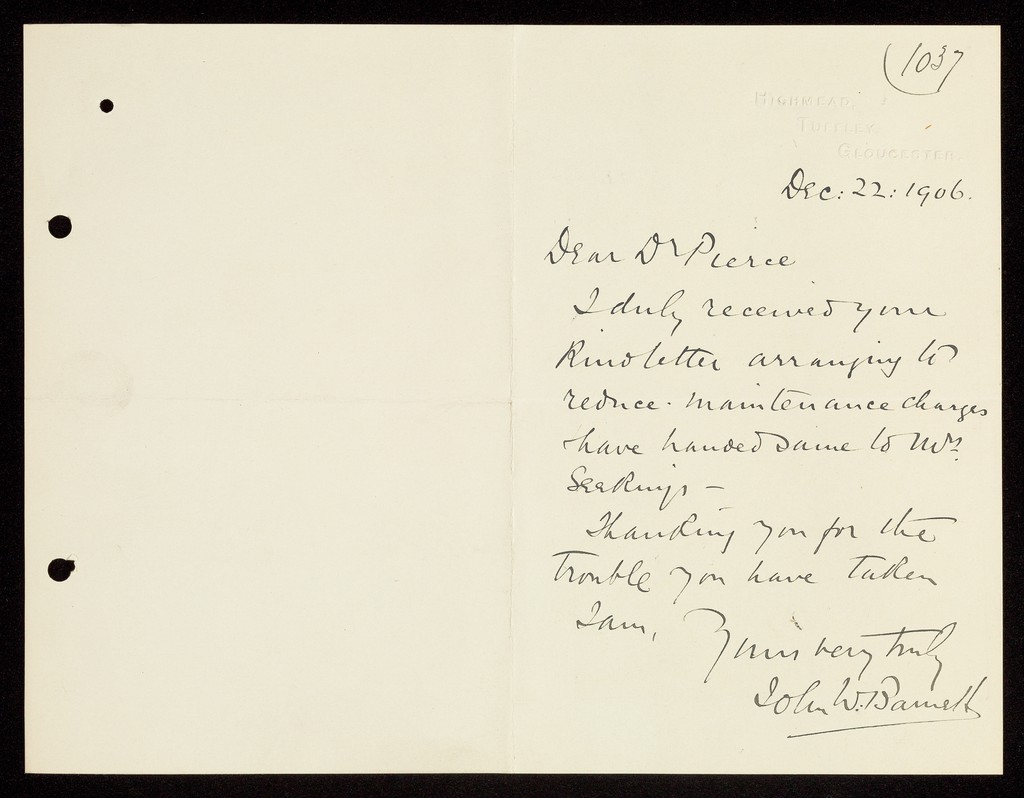 (1037
HIGHMEAD,
TUFFLEY,
GLOUCESTER.
Dec: 22: 1906.
Dear Dr Pierce
I duly received your
kind letter arranging to
reduce maintenance charges
have handed same to Mrs
Seekings —
Thanking you for the
trouble you have taken
I am,
Yours very truly
John W. Barnett